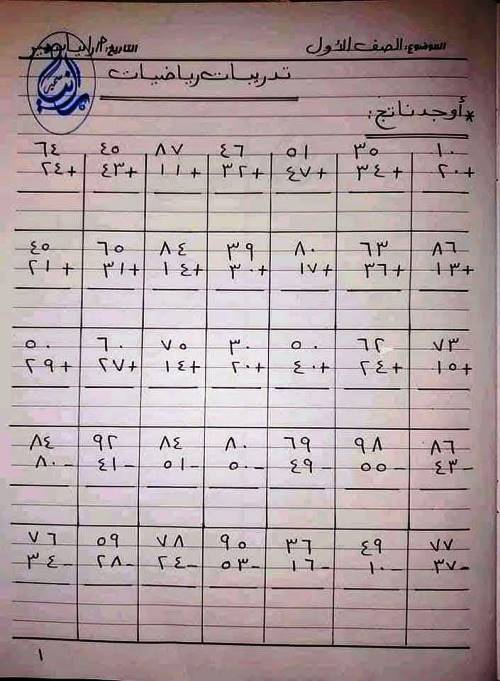 الموضوع: الصف الأول التاريخ: م/ رانيا سمير
تدريبات رياضيات
* أوجد ناتج:
١٠ ٣٥ ٥١ ٤٦ ٨٧ ٤٥ ٦٤
٢٠+ ٣٤+ ٤٧+ ٣٢+ ١١+ ٤٣+ ٢٤+
٨٦ ٦٣ ٨٠ ٣٩ ٨٤ ٦٥ ٤٥
١٣+ ٣٦+ ١٧+ ٣٠+ ١٤+ ٣١+ ٢١+
٧٣ ٦٢ ٥٠ ٣٠ ٧٥ ٦٠ ٥٠
١٥+ ٢٤+ ٤٠+ ٢٠+ ١٤+ ٢٧+ ٢٩+
٨٦ ٩٨ ٦٩ ٨٠ ٨٤ ٩٢ ٨٤
٤٣- ٥٥- ٤٩- ٥٠- ٥١- ٤١- ٨٠-
٧٧ ٤٩ ٣٦ ٩٥ ٧٨ ٥٩ ٧٦
٣٧- ١٠- ١٦- ٥٣- ٢٤- ٢٨- ٣٤-
١